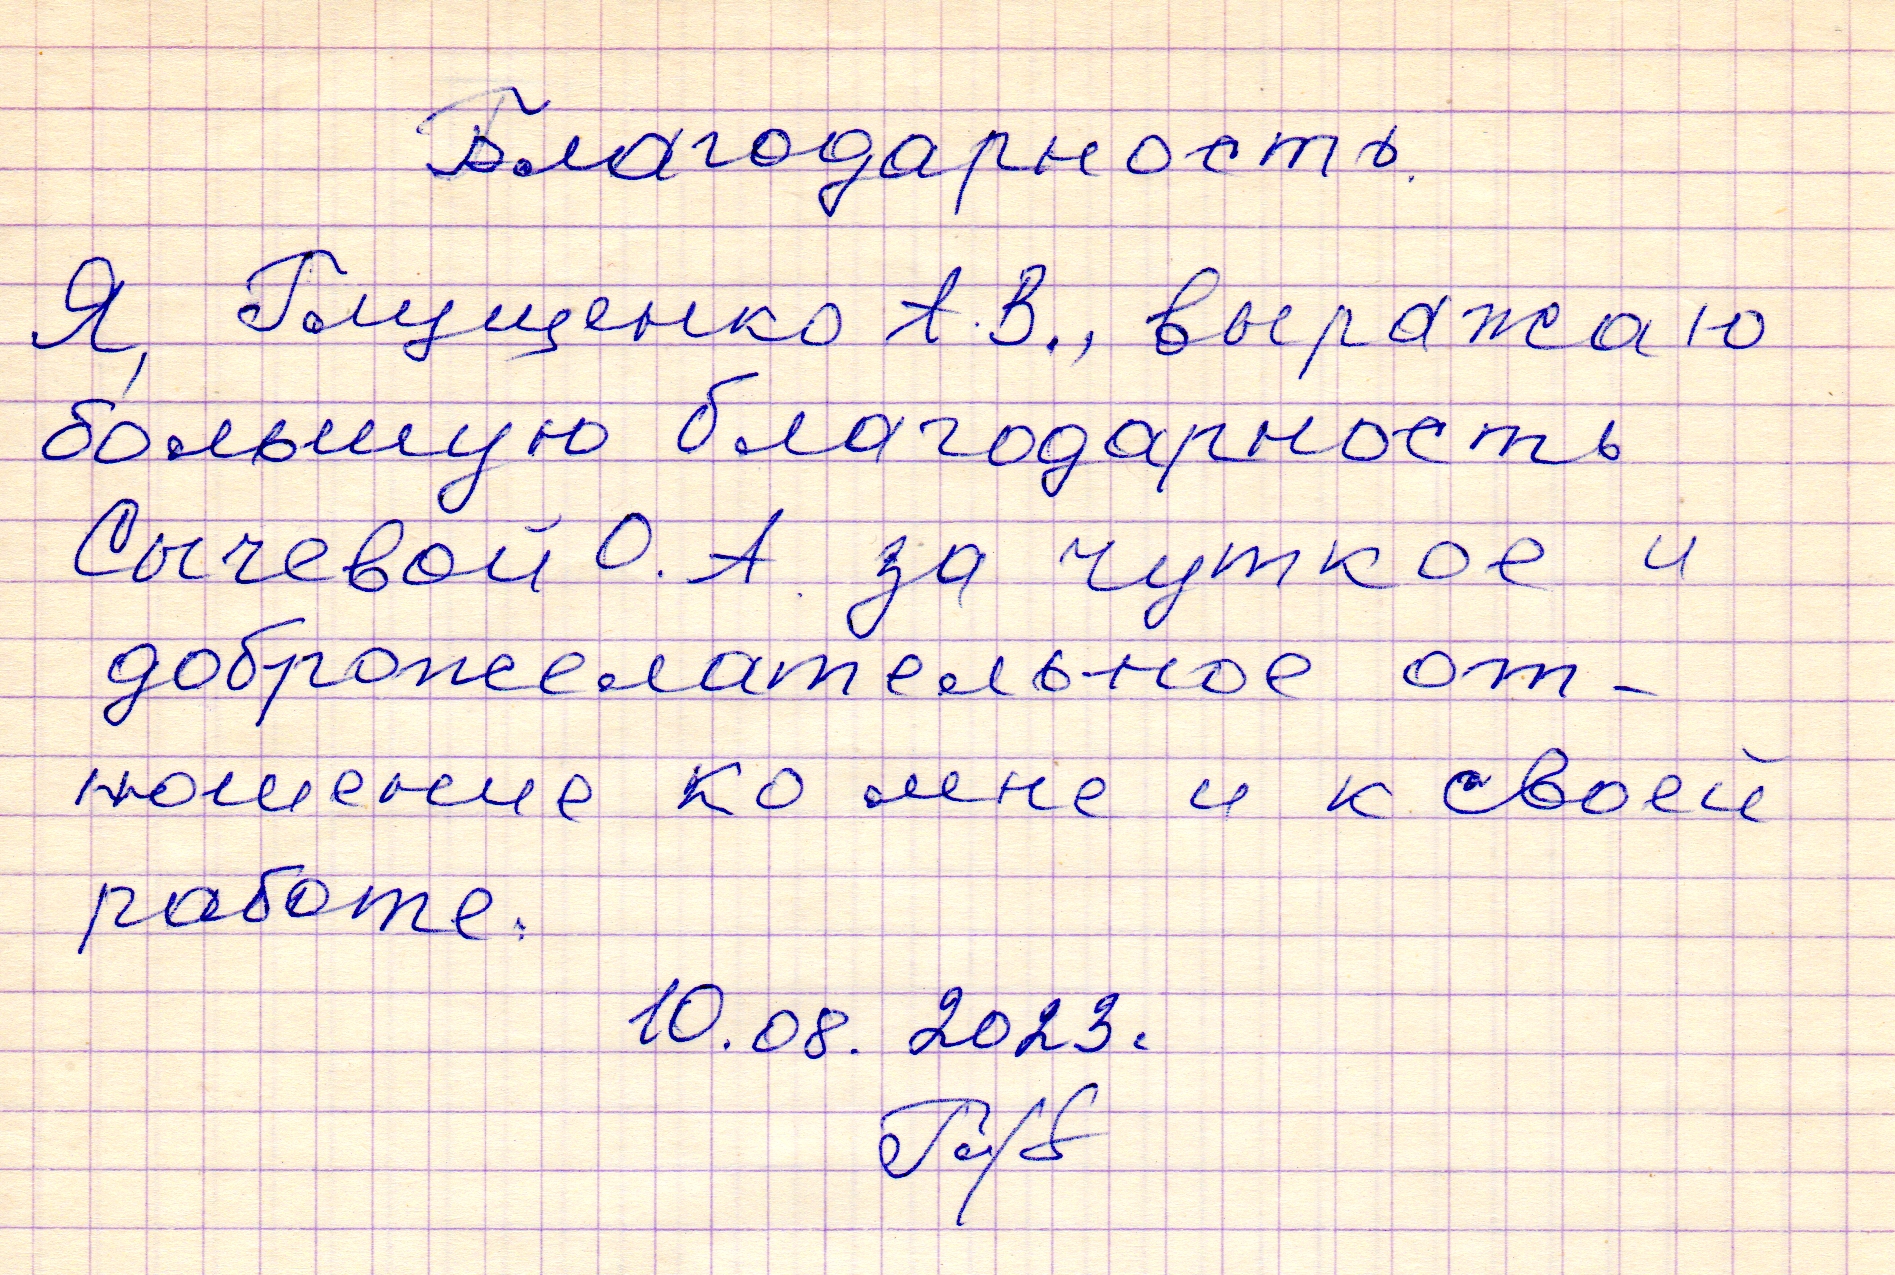 Благодарность.
Я, Глущенко А.В., выражаю
большую благодарность
Сычевой О.А. за чуткое и
доброжелательное от-
ношение ко мне и к своей
работе.
10.08.2023.